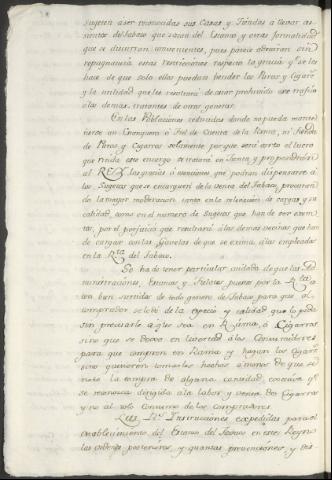 sugeten a ser reconocidas sus Casas y Tiendas a llevar as
sientos del Tabaco que sacan del Estanco y otras formalidad
que se discurran convenientes, pues parece abrazaran sin
repugnancia estas restricciones respecto la gracia qe. se les
hace de que solo ellas puedan bender los Puros y Cigarrs.
y la utilidad que les resultará de estar prohivido este trafico
a las demas tratantes de otros generos.
En las Poblaciones reducidas donde no pueda mante
nerse un Estanquero ó Fiel de Cuenta de la Renta, ni
de Puros y Cigarros solamente porque será corto el lucro
que rinda este encargo se tratará en Junta, y propondrán
al REY las gracias ó exenciones que podran dispensarse á
los Sugetos que se encarguen de la venta del Tabaco, procuran
do la mayor moderacion tanto en la relevacion de cargas y su
calidad, como en el numero de Sugetos que han de ser exen
tos, por el perjuicio que resultará á los demas vecinos que han
de cargar con las que se exima, á los empleados
en la Rta. del Tabaco.
Se ha de tener particular cuidado de que las Ad
ministraciones, Estancos y Fieles puestos por la Rta.
ten bien surtidos de todo genero de Tabaco para que al
comprador se le dé de la especie y calidad que lo pida
sin precisarle a que sea en Rama, ó Cigarros
sino que se dexe en livertad á los Consumidores
para que compren en Rama y hagan los Cigarrs.
sino quisieren tomarlos hechos a menos de que se
note la compra de alguna cantidad, excesiva qe.
se reconozca dirigida á la labor y venta de Cigarros
y no al solo consumo de los compradores.
Las Rs. Instrucciones expedidas para el
establecimiento del Estanco del Tabaco en este Reyno
las ordenes posteriores, y quantas prevenciones, y dis